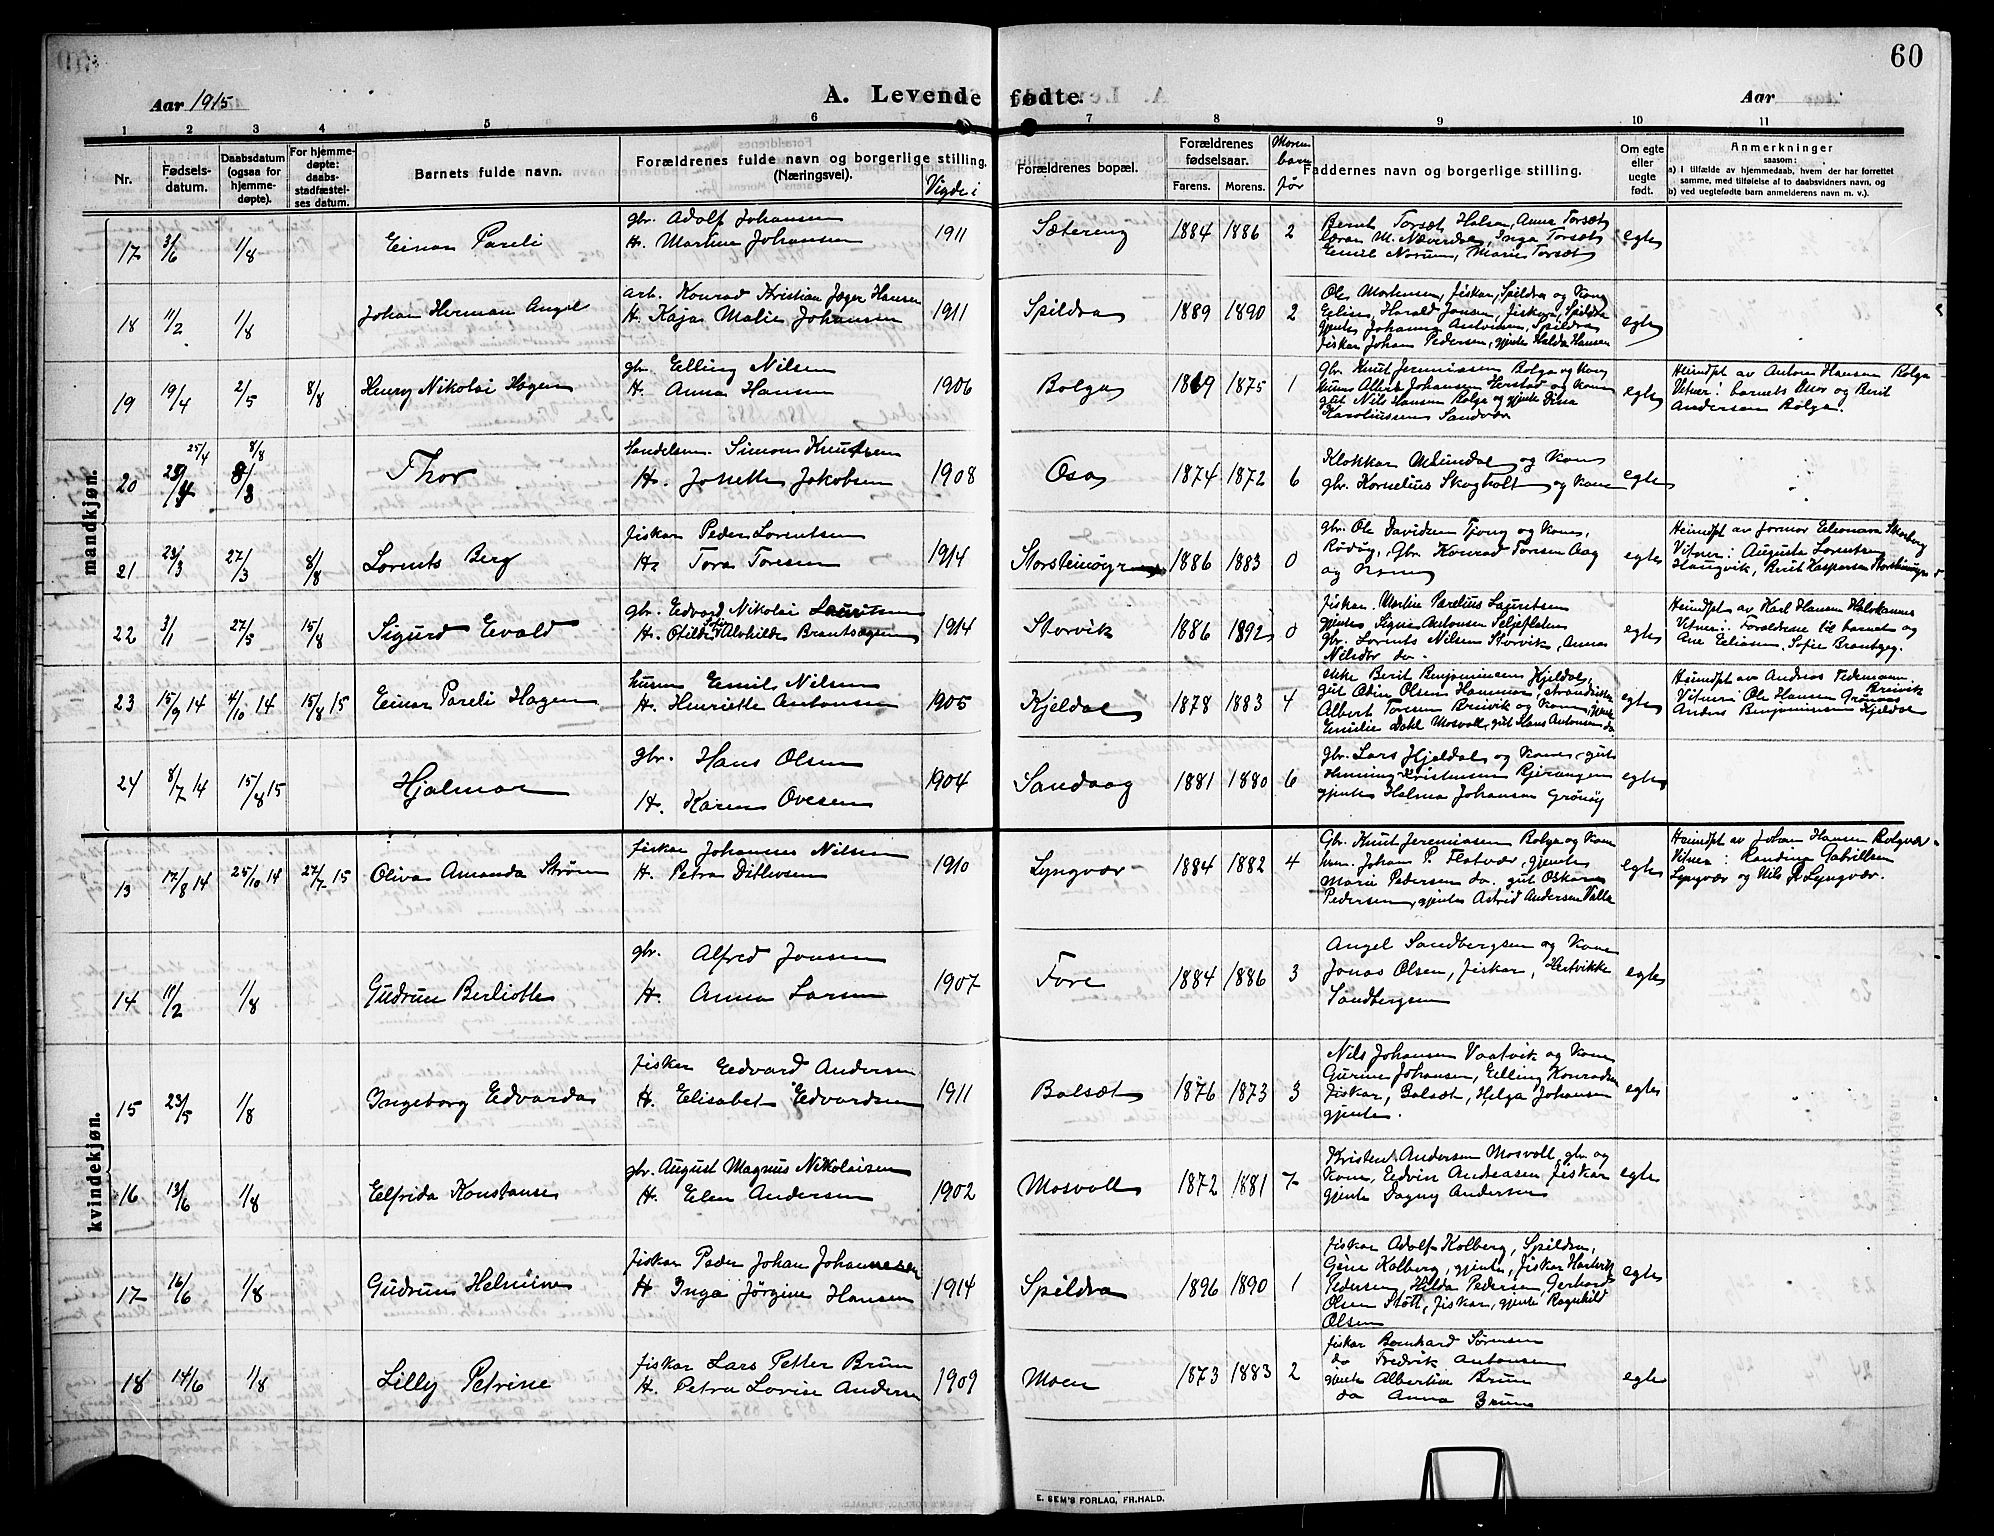 60
Aar 1915
A. Levende fødte.
Aar
1 2 3 4 5 6 7 8 9 10 11
Nr.
Fødsels-
datum.
Daabsdatum
(ogsaa for
hjemme-
døpte).
For hjemme-
døpte:
daabs-
stadfæstel-
ses datum.
Barnets fulde navn.
Forældrenes fulde navn og borgerlige stilling.
(Næringsvei).
Vigde i
Forældrenes bopæl.
Forældrenes
fødselsaar.
Farens. Morens.
Moren
barn
før
Faddernes navn og borgerlige stilling.
Om egte
eller
uegte
født.
Anmerkninger
saasom:
a) I tilfælde av hjemmedaab, hvem der har forrettet
samme, med tilføielse af to daabsvidners navn, og
b) ved uegtefødte barn anmelderens navn m. v.)
mandkjøn.
17 3/6 1/8 Einar Pareli
gbr. Adolf Johansen
H. Martine Johansen
1911 Sætereng 1884 1886 2
Bernt Torsæt Halsa, Anna Torsæt
Laran M. Næverdal, Inga Torsæt
Emil Norum, Marie Torsæt
egte
18 11/2 1/8 Johan Herman Angel
arb. Konrad Kristian Jæger Hansen
H. Kaja Malie Johansen
1911 Spildra 1889 1890 2
Ole Mortensen, fiskar, Spildra og Kona
Elise, Harald Jensen, fiskar, Spildra
gjente Johanna Antonsen, Spildra
fiskar Johan Pedersen, gjente Halda Hansen
egte
19 19/4 2/5 8/8 Henry Nikolai Hagen
gbr. Elling Nilsen
H. Anna Hansen
1906 Bolga 1869 1875 1
Gbr. Knut Jeremiassen Bolga og Kona
husm. Albert Johansen Herstad og Kona
gut Nils Hansen Bolga og gjente Dina
Karoliussen Sandvær
egte
Heimdøpt av Anton Hansen Bolga
Vitner: barnets mor og Berit
Andersen Bolga.
20 25/4 8/8 Thor
Handelsm. Simon Knutsen
H. Jonette Jakobsen
1908 Osa 1874 1872 6
Klokkar Meindal og Kona
gbr. Kornelius Skogholt og Kona
egte
21 23/3 27/3 8/8 Lorents Berg
fiskar Peder Lorentsen
H. Tora Toresen
1914 1886 1883 0
gbr. Ole Davidsen Tjong og Kona,
Rødøy, Gbr. Konrad Toresen Aag
og Kona
egte
Heimdøpt av Jormor Eleonara Skarberg
Vitner: Augusta Lorentsen
Haugvik, Berit Kaspersen
22 3/1 27/5 15/8 Sigurd Evald
gbr. Edvard Nikolai Lauritsen
H. Otilde Sofie Alohilde Brantsagen
1914 Storvik 1886 1892 0
fiskar Martin Parelius Lauritsen
gjente Signe Antonsen Seljeflaten
gbr. Lorents Nilsen Storvik, Anna
Nilsdtr do.
egte
Heimdøpt av Karl Hansen
Vitner: Foreldrene til barnet og
Ane Eliasen, Sofie Brantzeg.
23 15/9 14 4/10 14 15/8 15 Einar Pareli Hagen
husm Emil Nilsen
H. Henriette Antonsen
1905 Kjeldal 1878 1883 4
ekke Berit Benjaminsen Kjeldal,
gut Odin Olsen
Albert Toresen Breivik og Kona, gjente
Emilie Dahl Mosvoll, gut Hans Antonsen do.
egte
Heimdøpt av Andreas Pedersen
Breivik
Vitner: Ole Hansen Grønaas
Anders Benjaminsen Kjeldal
24 8/7 14 15/8 15 Hjalmar
gbr. Hans Olsen
H. Karen Ovesen
1904 Sandaag 1881 1880 6
gbr. Lars Kjeldal og Kona, gut
Henning Kristensen
gjente Halma Johansen Grønøy
egte
kvindekjøn.
13 17/8 14 25/10 14 27/7 15 Oliva Amanda Strøm
fiskar Johannes Nilsen
H. Petra Ditlevsen
1910 Lyngvær 1884 1882 4
Gbr. Knut Jeremiassen Bolga og Kona
husm. Johan P. Flatvær, gjente
Marie Pedersen do. gut Oskar
Pedersen, gjente Astrid Andersen Valla
egte
Heimdøpt av Johan Hansen Bolgvær
Vitner: Randina Gabrilsen
Lyngvær og Nils P. Lyngvær.
14 11/2 1/8 Gudrun Berliotte
gbr. Alfred Jonsen
H. Anna Larsen
1907 Fore 1884 1886 3
Angel Sandbergsen og Kona
Jonas Olsen, fiskar, Hertvikke
Sandbergsen
egte
15 23/5 1/8 Ingeborg Edvarda
fiskar Eedvard Andersen
H. Elisabet Edvardsen
1911 Balsæt 1876 1873 3
Nils Johansen Vaatvik og Kona
Gurine Johansen, Elling Konradsen
fiskar, Balsæt, Helga Johansen
gjente.
egte
16 13/6 1/8 Elfrida Konstanse
gbr. August Magnus Nikolaisen
H. Elen Andersen
1902 Mosvoll 1872 1881 7
Kristen Andersen Mosvoll gbr og
Kona, Edvin Andreasen fiskar
gjente Dagny Andersen
egte
17 16/6 1/8 Gudrun Helmine
fiskar Peder Johan Johannesen
H. Inga Jørgine Hansen
1914 Spildra 1896 1890 1
fiskar Adolf Kolberg, Spildra,
Gine Kolberg, gjente, fiskar Hartvik
Pedersen, Hilda Pedersen, Gerhard
Olsen Støtt, fiskar, gjente Ragnhild
Olsen
egte
18 14/6 1/8 Lilly Petrine
fiskar Lars Petter Brun
H. Petra Lovise Andersen
1909 Moen 1873 1883 2
fiskar Bernhard Sørensen
do Fredrik Antonsen
gjente Albertine Brun
do Anna Brun
egte
E. SEM'S FORLAG, FR.HALD.